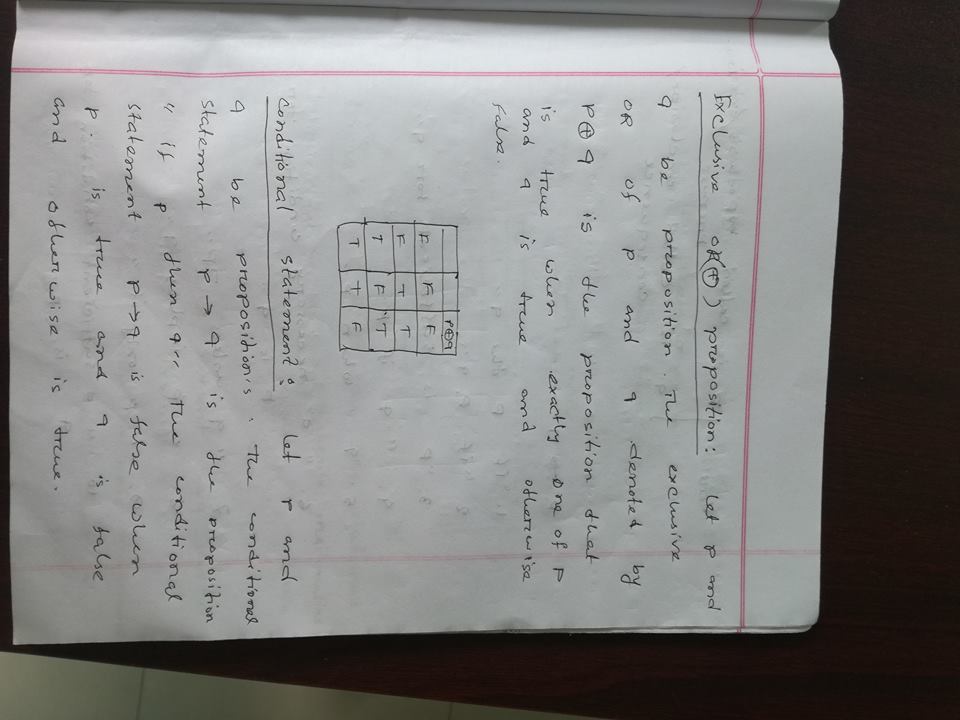 Exclusive OR(⊕) proposition: Let p and
q be proposition. The exclusive
OR of p and q denoted by
P⊕q is the proposition that
is true when exactly one of p
and q is true and otherwise
false.
P⊕q
F F F
F T T
T F T
T T F
Conditional statement: Let p and
q be proposition's. The conditional
statement p → q is the proposition
" if p then q" The conditional
statement p → q is false when
p. is true and q is false
and otherwise is true.